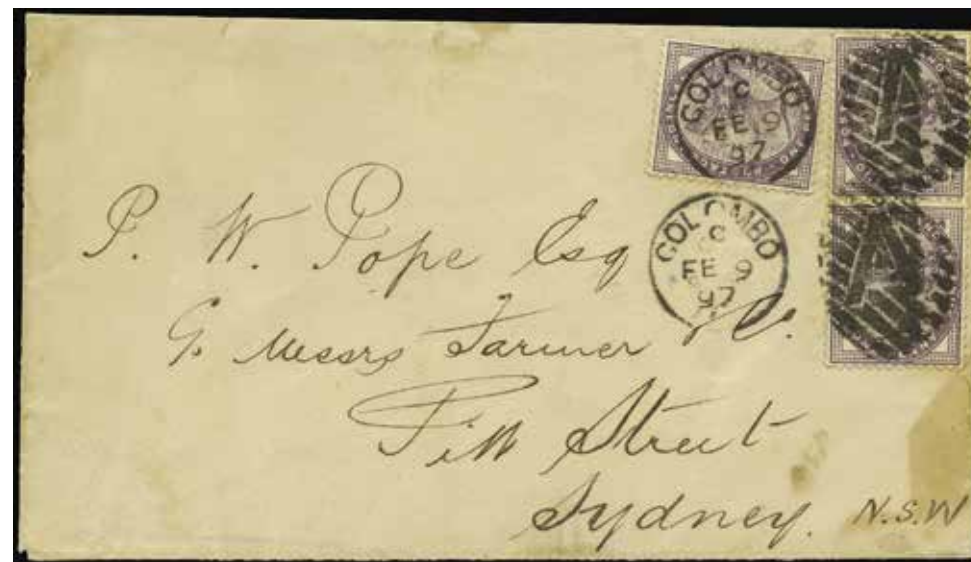 COLOMBO
C
FE 9
97
A
COLOMBO
C
FE 9
97
A
P. W. Pope Esq
Messrs Farmer & Co.
Pitt Street
Sydney.
N.S.W